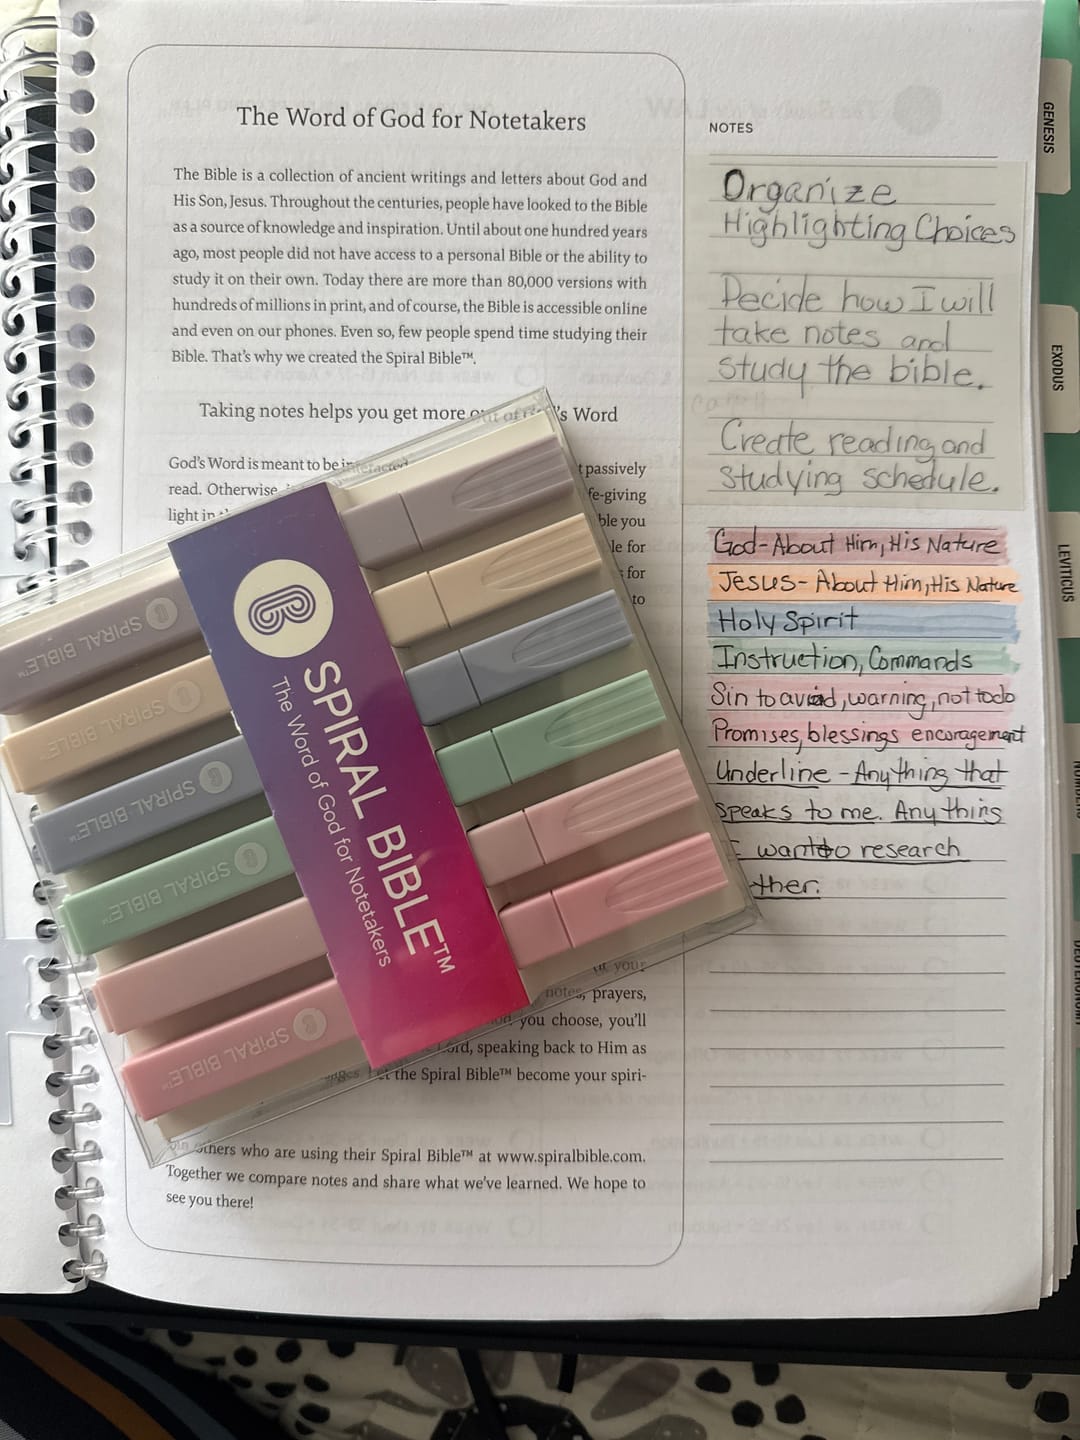 The Word of God for Notetakers
The Bible is a collection of ancient writings and letters about God and
His Son, Jesus. Throughout the centuries, people have looked to the Bible
as a source of knowledge and inspiration. Until about one hundred years
ago, most people did not have access to a personal Bible or the ability to
study it on their own. Today there are more than 80,000 versions with
hundreds of millions in print, and of course, the Bible is accessible online
and even on our phones. Even so, few people spend time studying their
Bible. That's why we created the Spiral Bible™.
Taking notes helps you get more out of God's Word
God's Word is meant to be interacted
passively
read. Otherwise
light in
you
for
for
to
your
notes, prayers,
you choose, you'll
speaking back to Him as
the Spiral Bible™ become your spiri-
others who are using their Spiral Bible™ at www.spiralbible.com.
Together we compare notes and share what we've learned. We hope to
see you there!
NOTES
Organize
Highlighting Choices
Decide how I will
take notes and
study the bible.
Create reading and
studying schedule.
God-About Him, His Nature
Jesus- About Him, His Nature
Holy Spirit
Instruction, Commands
Sin to avoid, warning, not todo
Promises, blessings encouragement
Underline - Anything that
speaks to me. Any thing
want to research
SPIRAL BIBLE™
The Word of God for Notetakers
SPIRAL BIBLE™
SPIRAL BIBLE™
SPIRAL BIBLE™
SPIRAL BIBLE™
SPIRAL BIBLE™
GENESIS
EXODUS
LEVITICUS
NUMBERS
DEUTERONOMY